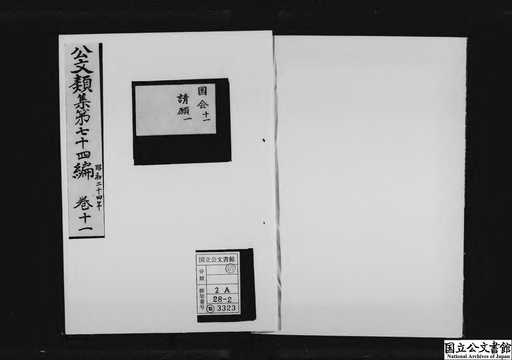 公文類集第七十四編 昭和二十四年 巻十一
国会 十一
請願 一
国立公文書館
分類
排架番号
2A
28-2
3323
国立公文書館
National Archives of Japan